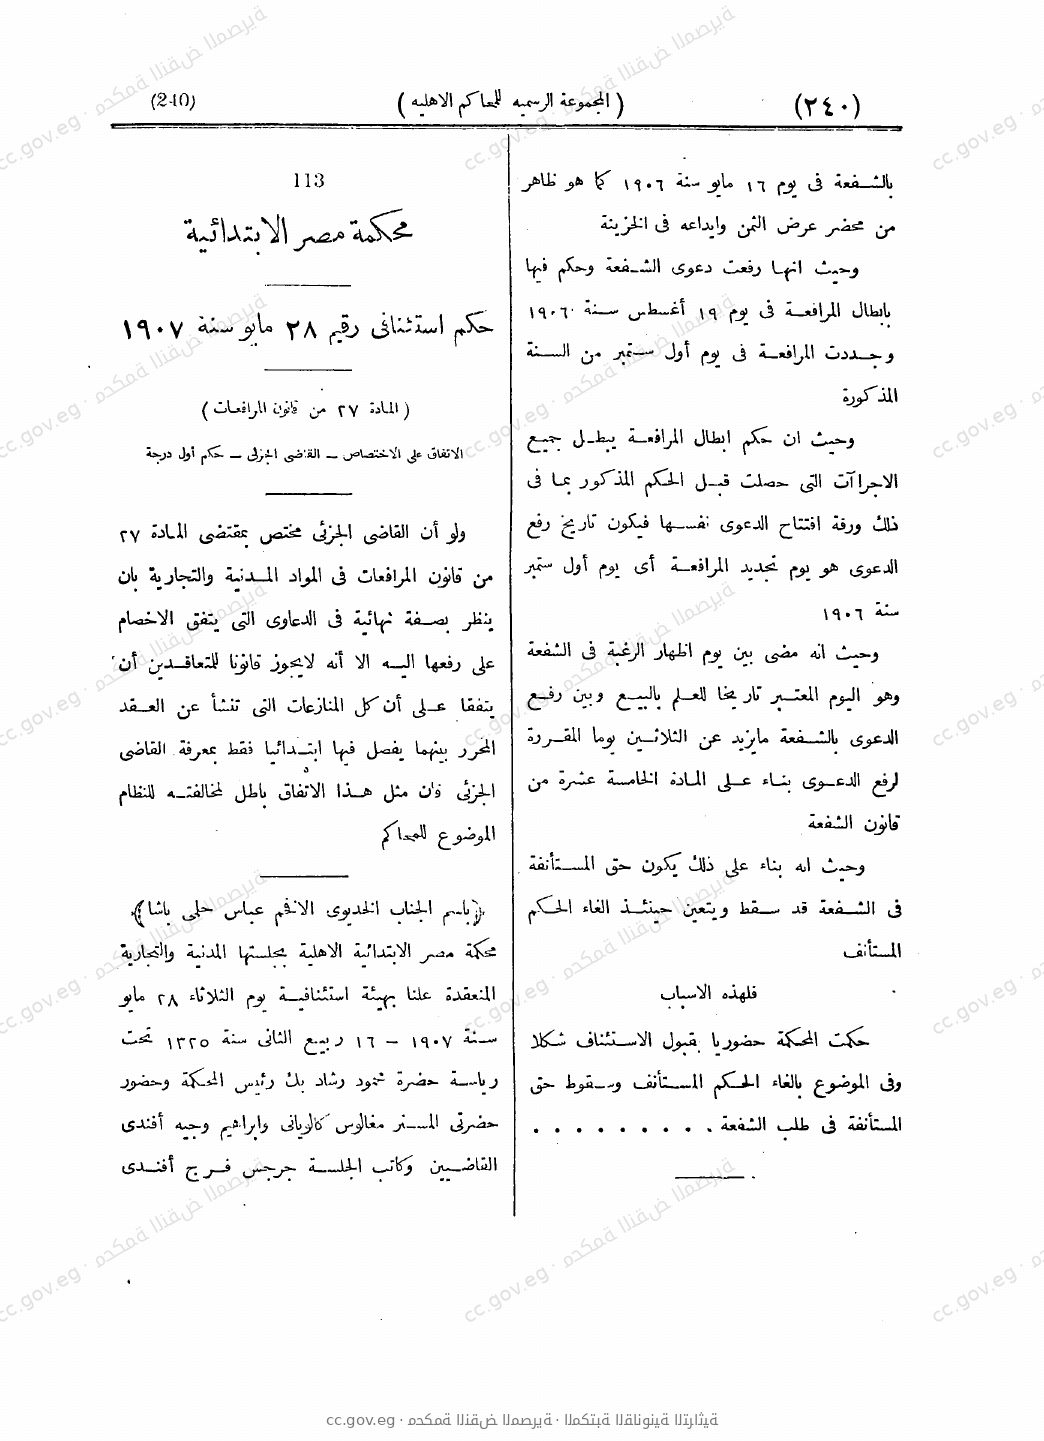 (٢٤٠)
(المجموعة الرسميه للمحاكم الاهليه)
(240)
بالشفعة فى يوم ١٦ مايو سنة ١٩٠٦ كما هو ظاهر
من محضر عرض الثمن وايداعه فى الخزينة
وحيث انها رفعت دعوى الشفعة وحكم فيها
بابطال المرافعة فى يوم ١٩ أغسطس سنة ١٩٠٦
وجددت المرافعة فى يوم أول سبتمبر من السنة
المذكورة
وحيث ان حكم ابطال المرافعة يبطل جميع
الاجراآت التى حصلت قبل الحكم المذكور بما فى
ذلك ورقة افتتاح الدعوى نفسها فيكون تاريخ رفع
الدعوى هو يوم تجديد المرافعة أى يوم أول ستمبر
سنة ١٩٠٦
وحيث انه مضى بين يوم اظهار الرغبة فى الشفعة
وهو اليوم المعتبر تاريخا للعلم بالبيع وبين رفع
الدعوى بالشفعة مايزيد عن الثلاثين يوما المقررة
لرفع الدعوى بناء على المادة الخامسة عشرة من
قانون الشفعة
وحيث انه بناء على ذلك يكون حق المستأنفة
فى الشفعة قد سقط ويتعين حينئذ الغاء الحكم
المستأنف
فلهذه الاسباب
حكمت المحكمة حضوريا بقبول الاستئناف شكلا
وفى الموضوع بالغاء الحكم المستأنف وسقوط حق
المستأنفة فى طلب الشفعة . . . . . . . . .
113
محكمة مصر الابتدائية
حكم استئنافى رقيم ٢٨ مايو سنة ١٩٠٧
(المادة ٢٧ من قانون المرافعات)
الاتفاق على الاختصاص – القاضى الجزئى – حكم أول درجة
ولو أن القاضى الجزئى مختص بمقتضى المادة ٢٧
من قانون المرافعات فى المواد المدنية والتجارية بان
ينظر بصفة نهائية فى الدعاوى التى يتفق الاخصام
على رفعها اليه الا أنه لايجوز قانونا للمتعاقدين أن
يتفقا على أن كل المنازعات التى تنشأ عن العقد
المحرر بينهما يفصل فيها ابتدائيا فقط بمعرفة القاضى
الجزئى فان مثل هذا الاتفاق باطل لمخالفته للنظام
الموضوع للمحاكم
﴿باسم الجناب الخديوى الافخم عباس حلمى باشا﴾
محكمة مصر الابتدائية الاهلية بجلستها المدنية والتجارية
المنعقدة علنا بهيئة استئنافية يوم الثلاثاء ٢٨ مايو
سنة ١٩٠٧ – ١٦ ربيع الثانى سنة ١٣٢٥ تحت
رياسة حضرة محمود رشاد بك رئيس المحكمة وحضور
حضرتى المستر مغالوس كالويانى وابراهيم وجيه أفندى
القاضيين وكاتب الجلسة جرجس فرج أفندى
cc.gov.eg · محكمة النقض المصرية · المكتبة القانونية التراثية